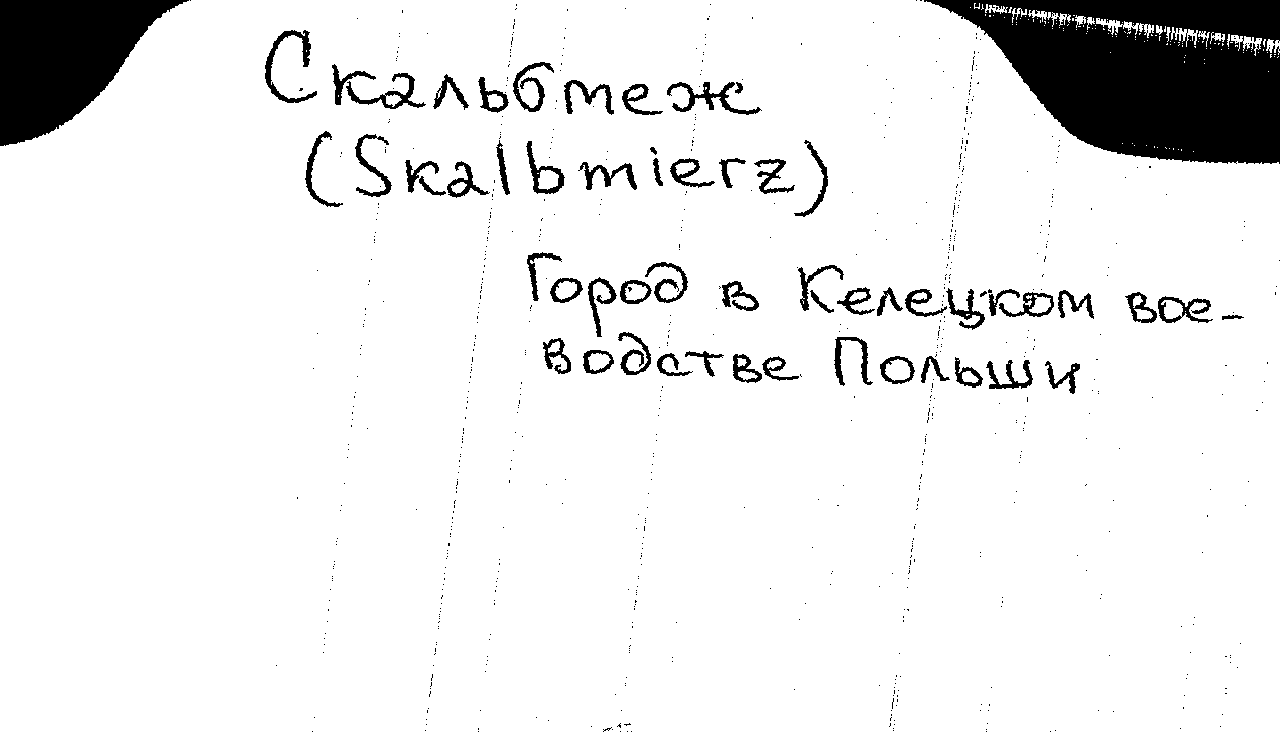 Скальбмеж
(Skalbmierz)
Город в Келецком вое-
водстве Польши